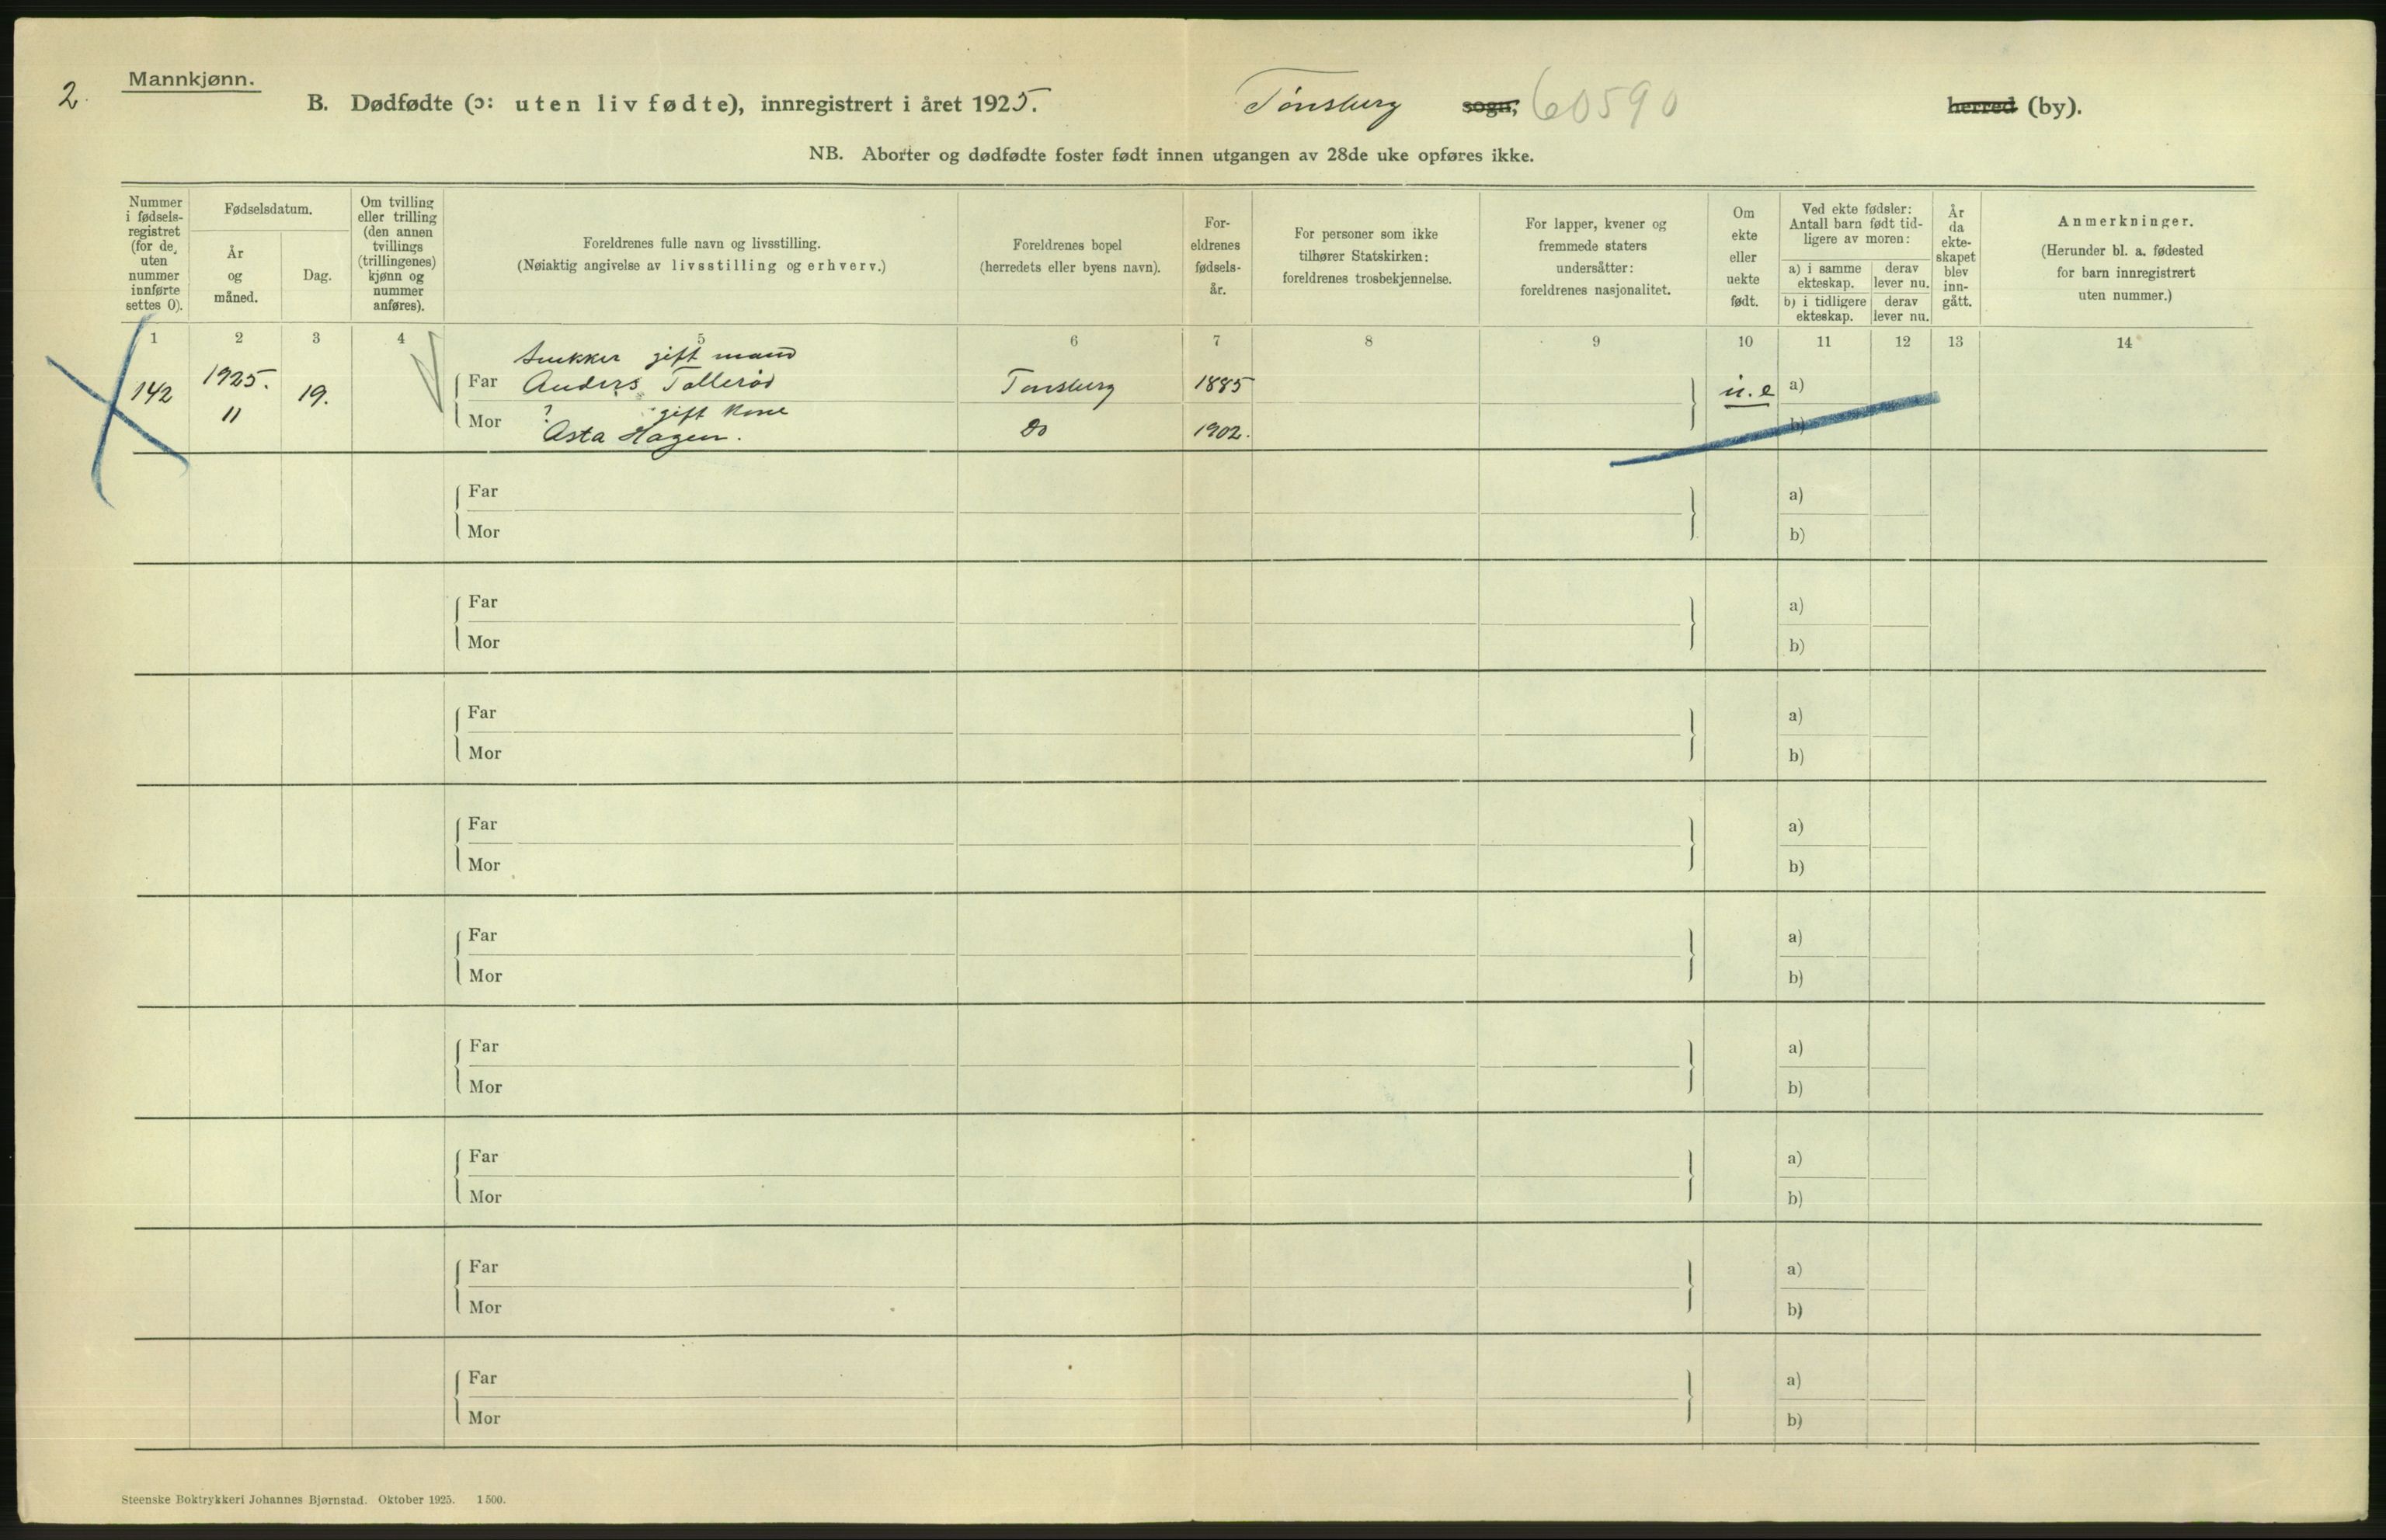 2.
Mannkjønn.
B. Dødfødte (ɔ: uten liv fødte), innregistrert i året 1925. Tønsberg sogn, 60590 herred (by).
NB. Aborter og dødfødte foster født innen utgangen av 28de uke opføres ikke.
Nummer i fødsels-registret (for de uten nummer innførte settes 0).
Fødselsdatum.
År og måned.
Dag.
Om tvilling eller trilling (den annen tvillings (trillingenes) kjønn og nummer anføres).
Foreldrenes fulle navn og livsstilling.
(Nøiaktig angivelse av livsstilling og erhverv.)
Foreldrenes bopel
(herredets eller byens navn).
For-eldrenes fødsels-år.
For personer som ikke tilhører Statskirken: foreldrenes trosbekjennelse.
For lapper, kvener og fremmede staters undersåtter: foreldrenes nasjonalitet.
Om ekte eller uekte født.
Ved ekte fødsler: Antall barn født tid-ligere av moren:
a) i samme ekteskap. derav lever nu.
b) i tidligere ekteskap. derav lever nu.
År da ekte-skapet blev inn-gått.
Anmerkninger.
(Herunder bl. a. fødested for barn innregistrert uten nummer.)
1 2 3 4 5 6 7 8 9 10 11 12 13 14
Snekker gift mand
142 1925. 19. Far Anders Tollerød Tønsberg 1885 u.e a)
11 ? gift kone
Mor Asta Hagen. Do 1902. b)
Far a)
Mor b)
Far a)
Mor b)
Far a)
Mor b)
Far a)
Mor b)
Far a)
Mor b)
Far a)
Mor b)
Far a)
Mor b)
Far a)
Mor b)
Far a)
Mor b)
Steenske Boktrykkeri Johannes Bjørnstad. Oktober 1925. 1500.